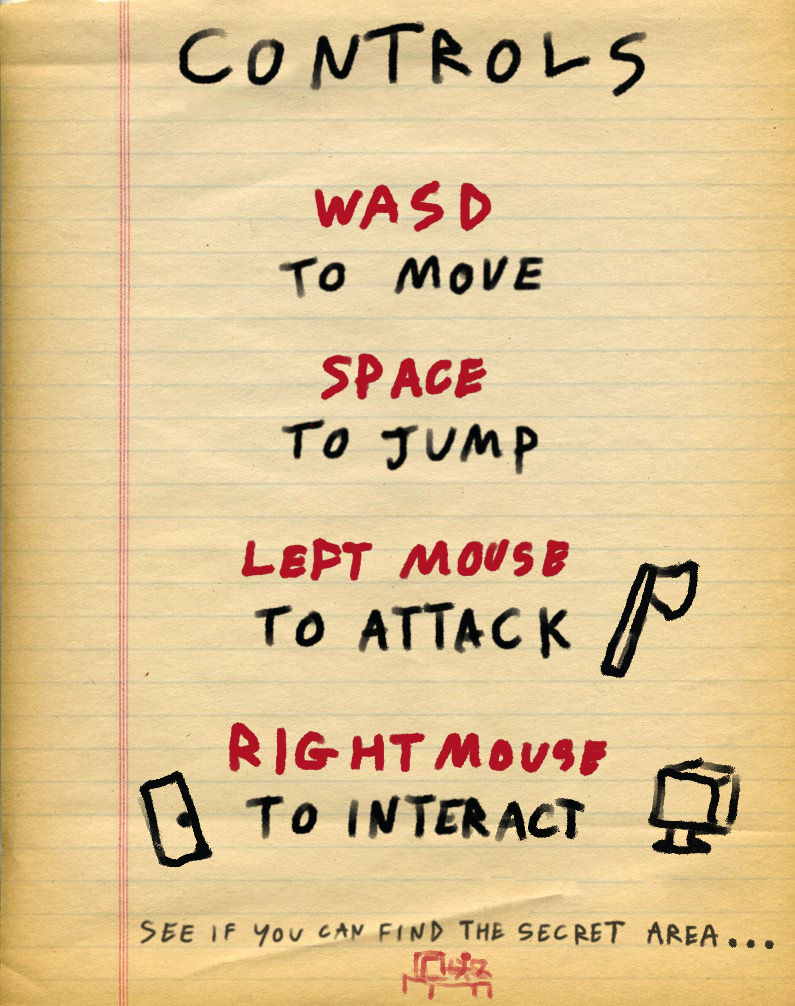 CONTROLS
WASD
TO MOVE
SPACE
TO JUMP
LEFT MOUSE
TO ATTACK
RIGHT MOUSE
TO INTERACT
SEE IF YOU CAN FIND THE SECRET AREA...